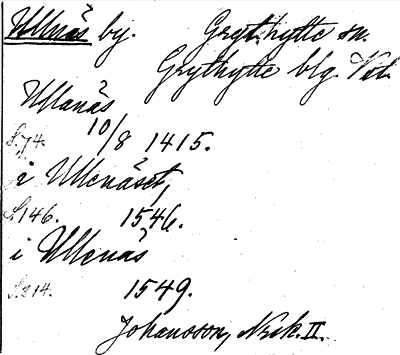 Ullnäs by. Grythytte sn.
Grythytte blg. Vstl.
Ullanäs
S. 74. 10/8 1415.
i Ullenäset,
S. 146. 1546.
i Ullenäs
S. 314. 1549.
Johansson, Norsk. II.